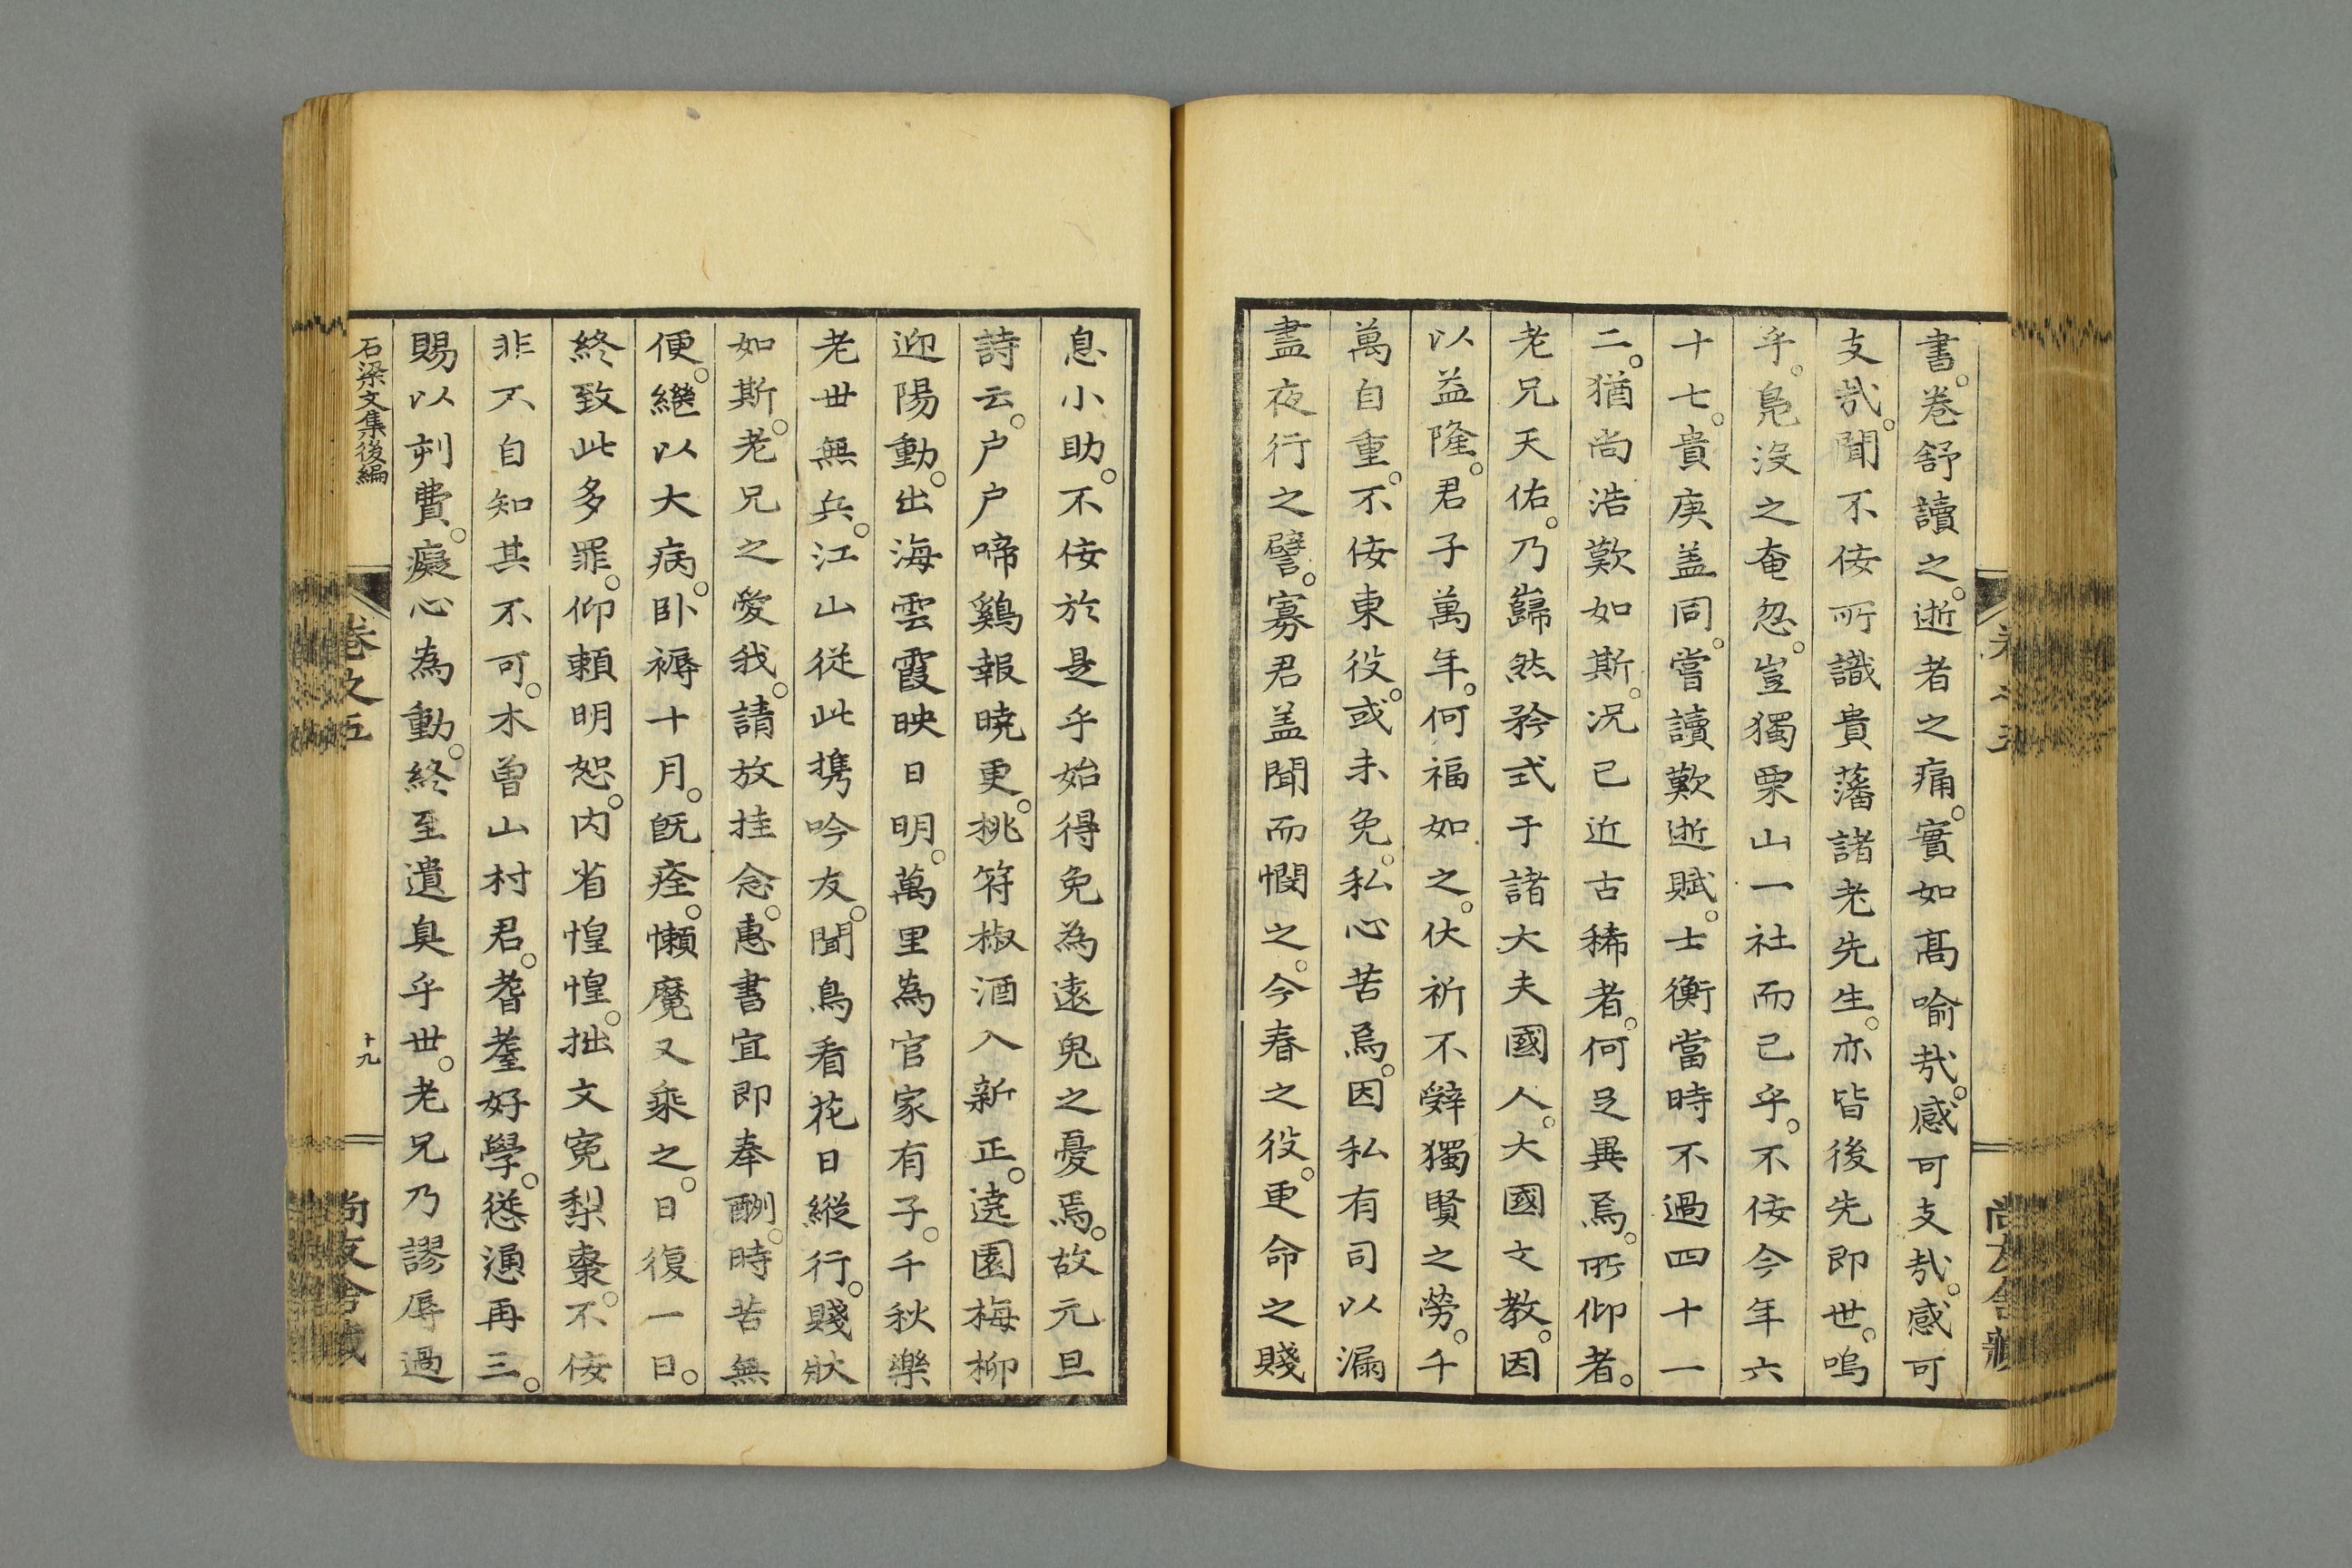 書。卷舒讀之。逝者之痛。實如髙喩㢤。感可支㢤。感可
支㢤。聞不佞所識貴藩諸老先生。亦皆後先即世。嗚
乎。鳬没之奄忽。豈獨栗山一社而已乎。不佞今年六
十七。貴庚盖同。嘗讀歎逝賦。士衡當時不過四十一
二。猶尚浩歎如斯。况已近古稀者。何足異焉。所仰者。
老兄天佑。乃巋然矜式于諸大夫國人。大國文教。因
以益隆。君子萬年。何福如之。伏祈不辭獨賢之勞。千
萬自重。不佞東役。或未免。私心苦焉。因私有司以漏
盡夜行之譬。寡君盖聞而憫之。今春之役。更命之賤
息小助。不佞於是乎始得免為遠鬼之憂焉。故元旦
詩云。戶戶啼鷄報曉更。桃符椒酒入新正。遶園梅柳
迎陽動。出海雲霞映日明。萬里為官家有子。千秋樂
老世無兵。江山從此携吟友。聞鳥看花日縱行。賤狀
如斯。老兄之愛我。請放挂念。惠書宜即奉酬。時苦無
便。繼以大病。卧褥十月。既痊。懶魔又乘之。日復一日。
終致此多罪。仰賴明恕。内省惶惶。拙文寃梨棗。不佞
非不自知其不可。木曽山村君。耆耋好學。慫慂再三。
賜以刻費。癡心為動。終至遺臭乎世。老兄乃謬辱過
石梁文集後編
卷之五
十九
尚友舍藏